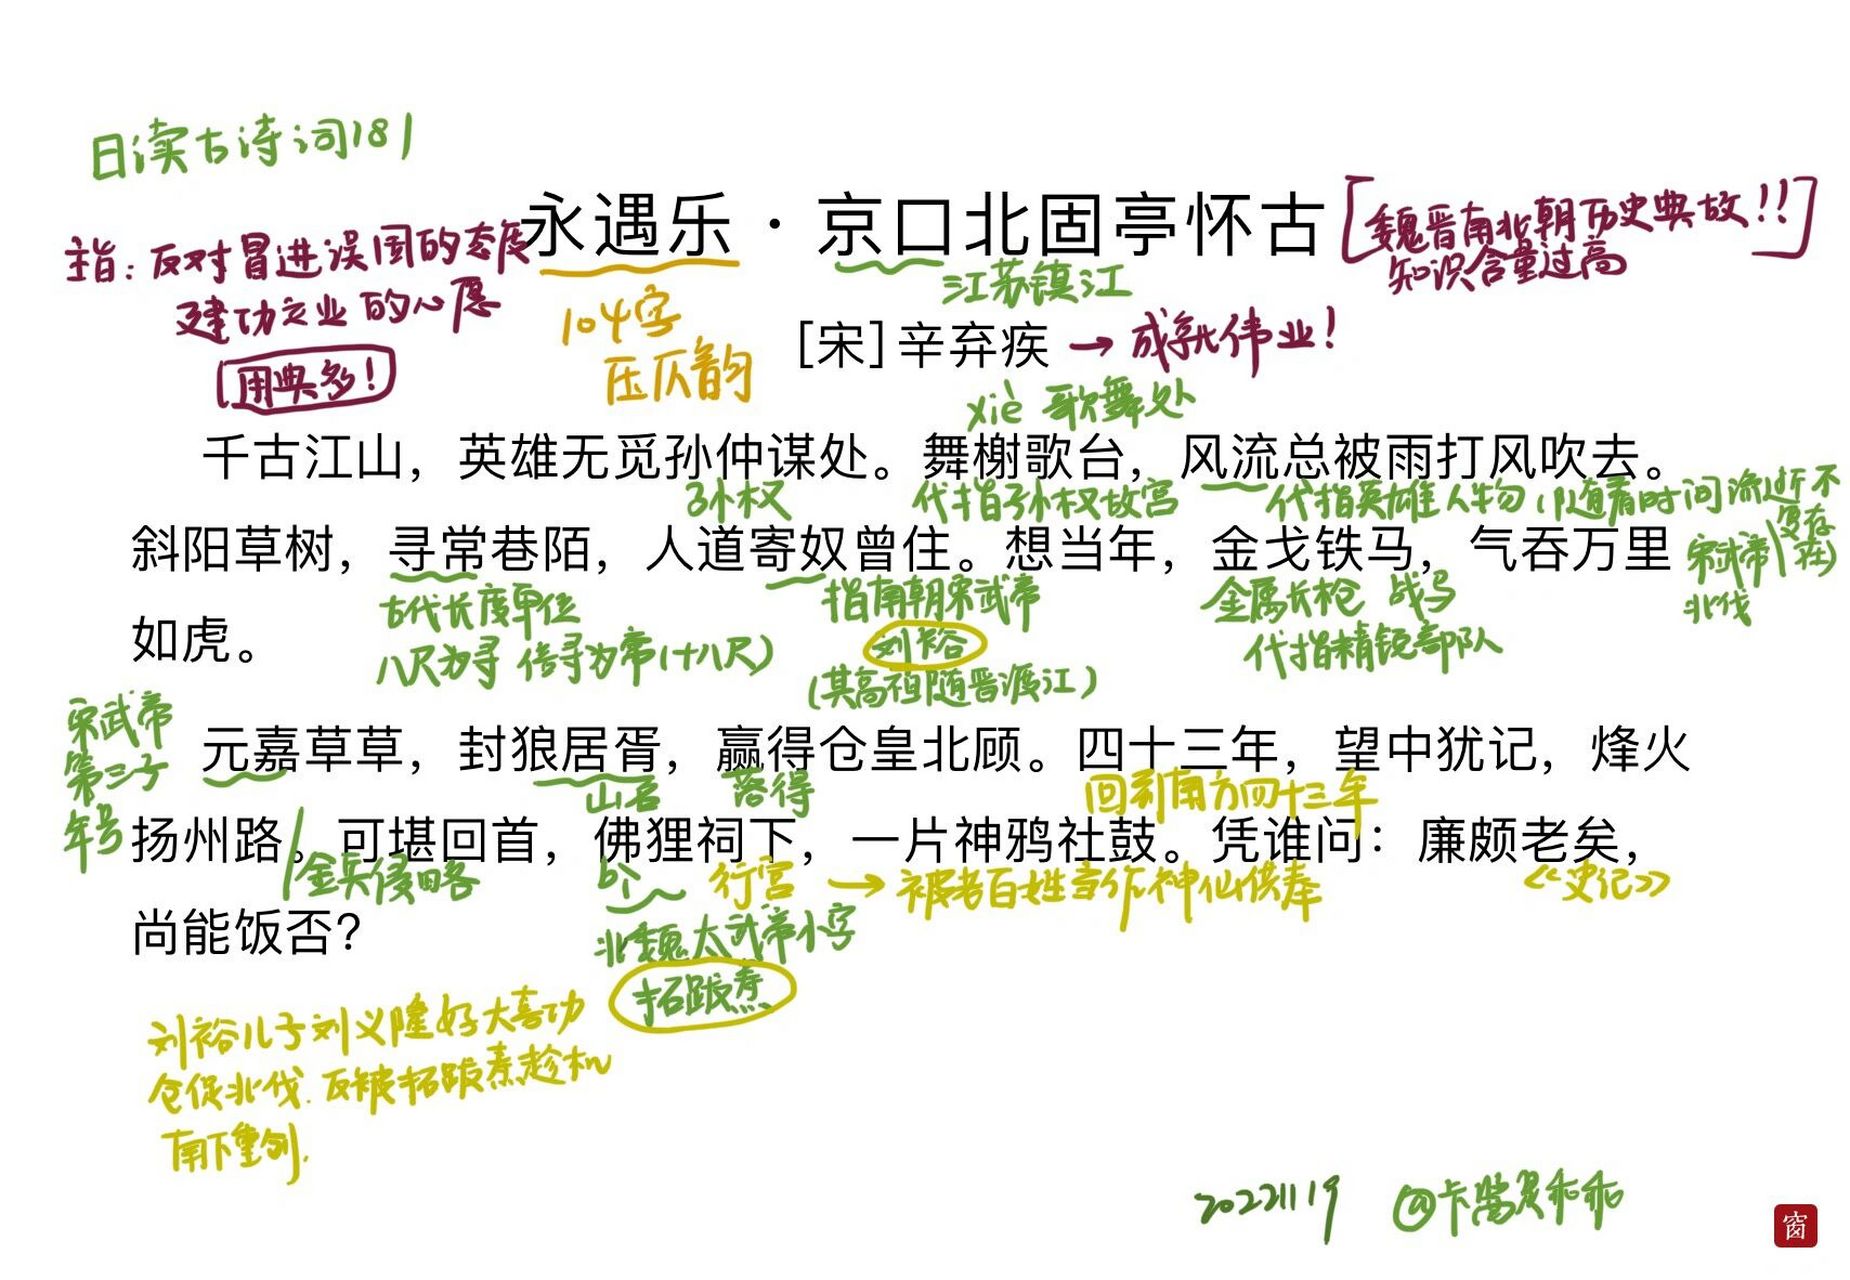 日读古诗词181
永遇乐·京口北固亭怀古
[魏晋南北朝历史典故!!]
知识含量过高
主旨:反对冒进误国的态度
建功立业的心愿
用典多!
104字
压仄韵
江苏镇江
[宋]辛弃疾→成就伟业!
xiè 歌舞处
千古江山，英雄无觅孙仲谋处。舞榭歌台，风流总被雨打风吹去。
孙权
代指孙权故宫
代指英雄人物(随着时间流逝不
复存在)
斜阳草树，寻常巷陌，人道寄奴曾住。想当年，金戈铁马，气吞万里
宋武帝
北伐
古代长度单位
八尺为寻 倍寻为常(十八尺)
指南朝宋武帝
刘裕
(其高祖随晋渡江)
金属长枪 战马
代指精锐部队
如虎。
宋武帝
第三子
年号
元嘉草草，封狼居胥，赢得仓皇北顾。四十三年，望中犹记，烽火
山名
落得
回到南方四十三年
扬州路。可堪回首，佛狸祠下，一片神鸦社鼓。凭谁问：廉颇老矣，
金兵侵略
bì
行宫→被老百姓当作神仙供奉
《史记》
北魏太武帝小字
拓跋焘
尚能饭否？
刘裕儿子刘义隆好大喜功
仓促北伐.反被拓跋焘趁机
南下重创.
20221119
窗